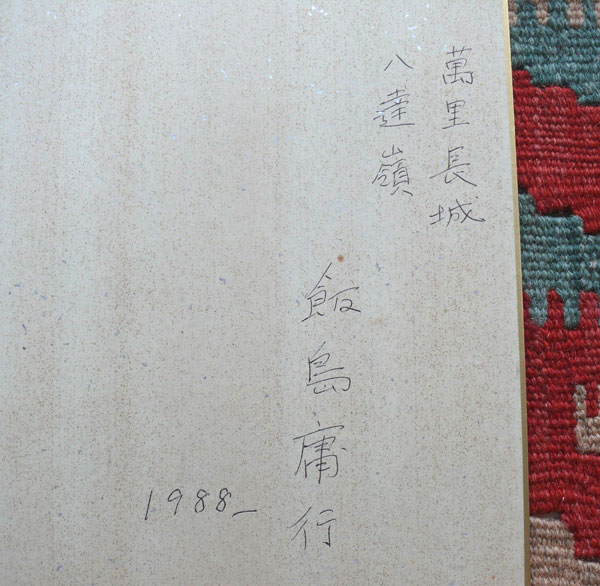 萬里長城
八達嶺
飯島庸行
1988_